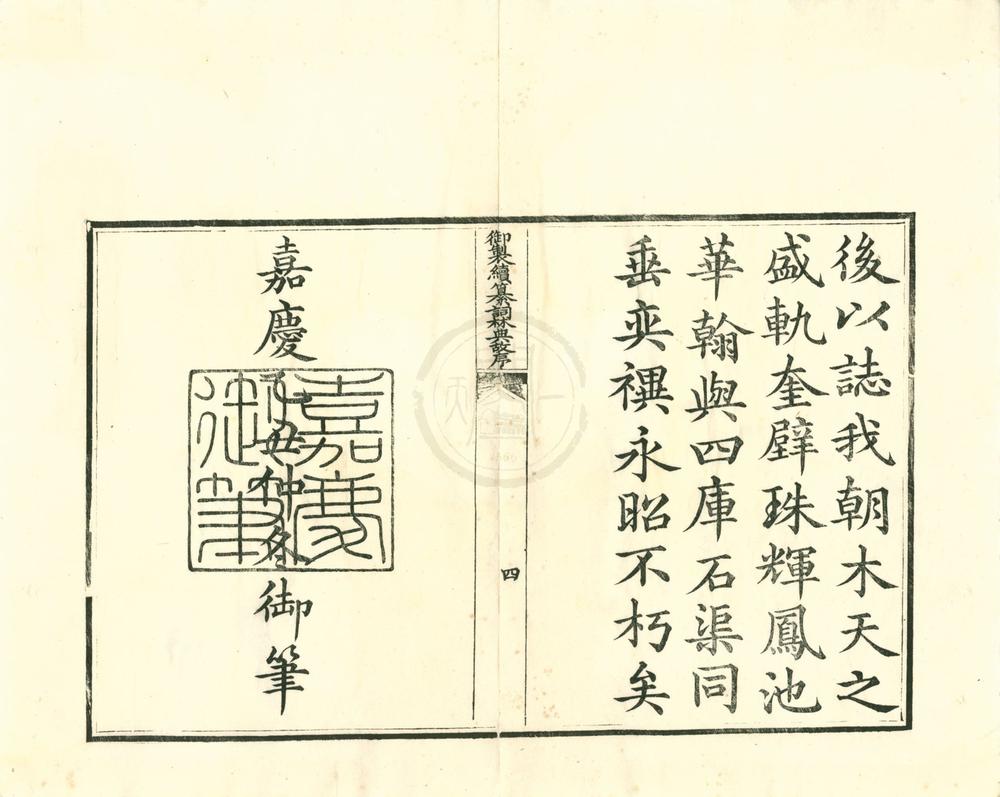 後以誌我朝木天之
盛軌奎壁珠輝鳳池
華翰與四庫石渠同
垂奕禩永昭不朽矣
御製續纂詞林典故序
四
嘉慶乙丑仲冬御筆
嘉慶
御筆